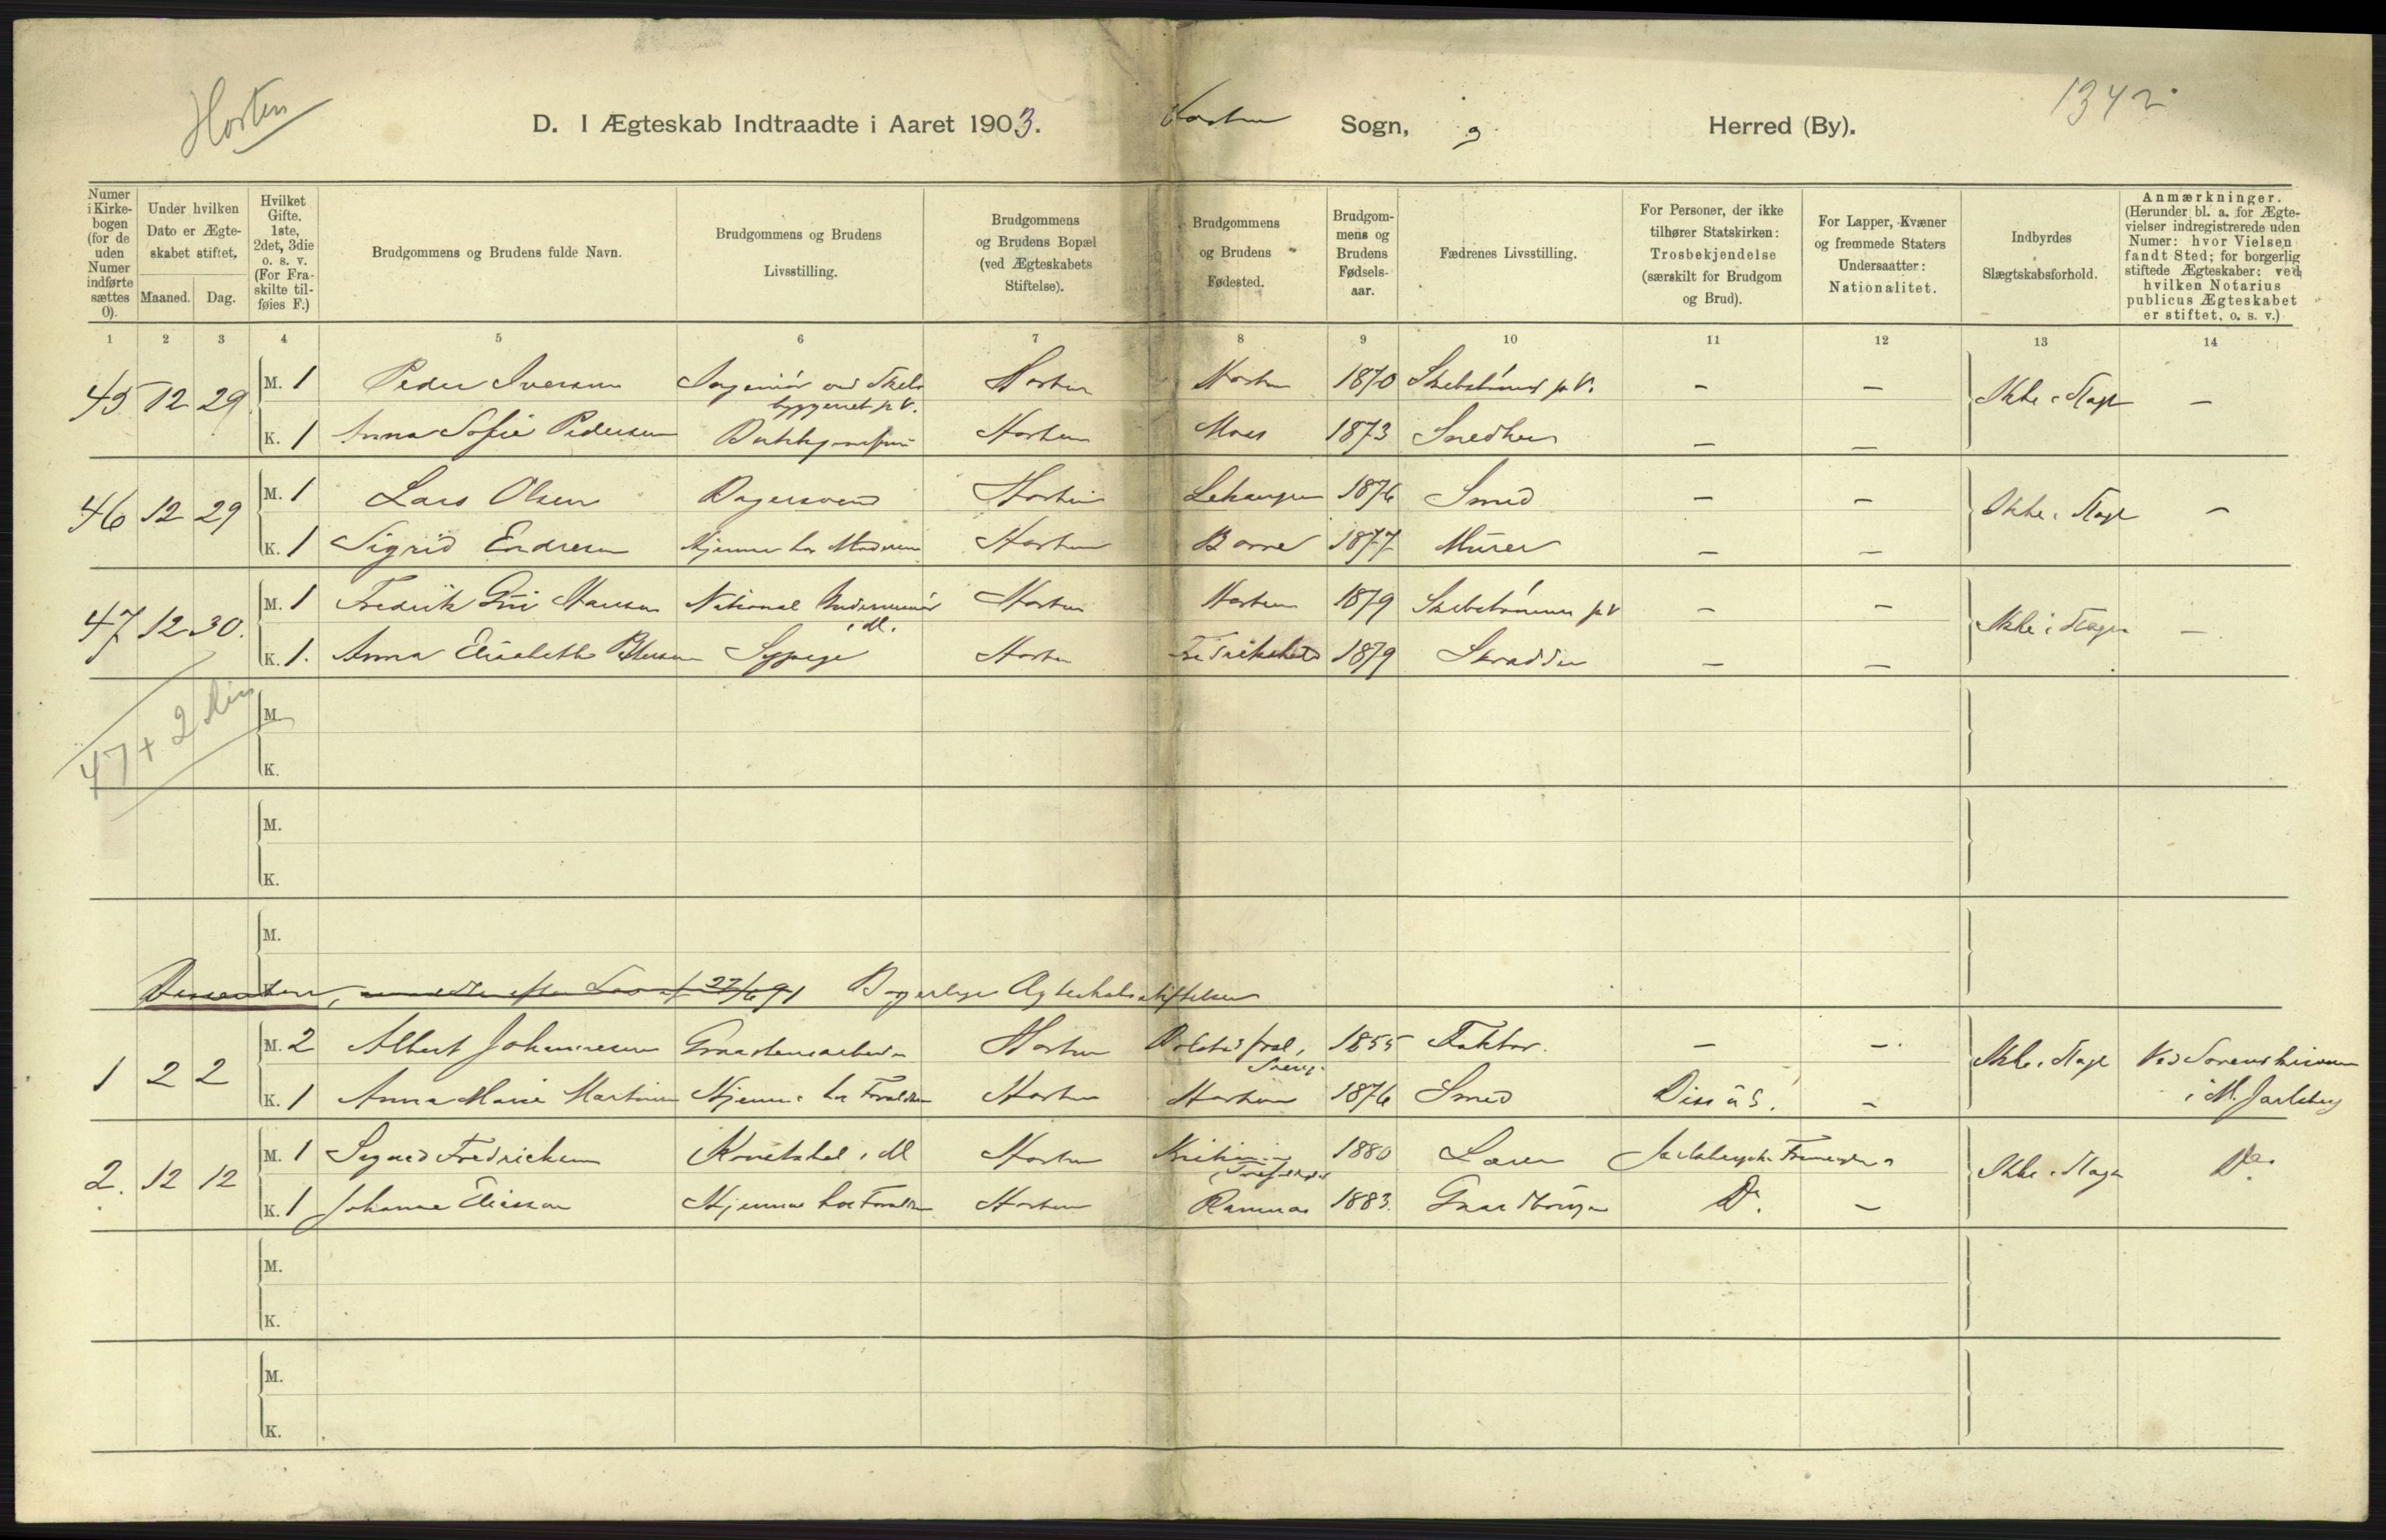 Horten
1342
D. I Ægteskab Indtraadte i Aaret 1903. Horten Sogn, og Herred (By).
Numer i Kirkebogen (for de uden Numer indførte sættes 0).
Under hvilken Dato er Ægteskabet stiftet,
Maaned. Dag.
Hvilket Gifte. 1ste, 2det, 3die o. s. v. (For Fraskilte tilføies F.)
Brudgommens og Brudens fulde Navn.
Brudgommens og Brudens Livsstilling.
Brudgommens og Brudens Bopæl (ved Ægteskabets Stiftelse).
Brudgommens og Brudens Fødested.
Brudgommens og Brudens Fødselsaar.
Fædrenes Livsstilling.
For Personer, der ikke tilhører Statskirken: Trosbekjendelse (særskilt for Brudgom og Brud).
For Lapper, Kvæner og fremmede Staters Undersaatter: Nationalitet.
Indbyrdes Slægtskabsforhold.
Anmærkninger. (Herunder bl. a. for Ægtevielser indregistrerede uden Numer: hvor Vielsen fandt Sted; for borgerlig stiftede Ægteskaber: ved hvilken Notarius publicus Ægteskabet er stiftet, o. s. v.)
1 2 3 4 5 6 7 8 9 10 11 12 13 14
45 12 29 M. 1 Peder Iversen Ingeniør ved Skibsbyggeriet p V. Horten Horten 1870 p V. — — Ikke i Slægt —
K. 1 Anna Sofie Pedersen Horten Moss 1873 Snedker — —
46 12 29 M. 1 Lars Olsen Bagersvend Horten Lekanger 1876 Smed — — Ikke i Slægt —
K. 1 Sigrid Endresen Hjemme hos Moderen Horten Borre 1877 Murer — —
47 12 30. M. 1 Fredrik Hansen National i M. Horten Horten 1879 p V — — Ikke i Slægt —
K. 1. Anna Elisabeth Petersen Sypige Horten Fredrikshald 1879 Skrædder — —
47 + 2 diss
M.
K.
M.
K.
M.
Dissentere, efter Lov af 27/6 91 Borgerlige Ægteskabsstiftelser
1 2 2 M. 2 Albert Johannesen Graastensarbeider Horten Sverige 1855 Faktor. — — Ikke i Slægt Ved Sorenskriveren
K. 1 Anna Marie Martinsen Hjemme hos Forældre Horten Horten 1876 Smed — i M. Jarlsberg
2. 12 12 M. 1 Sigurd Fredriksen i M Horten 1880 Lærer Ikke i Slægt Do.
K. 1 Johanne Eliassen Hjemme hos Forældre Horten Ramnæs 1883. Gaardbruger Do. —
M.
K.
M.
K.